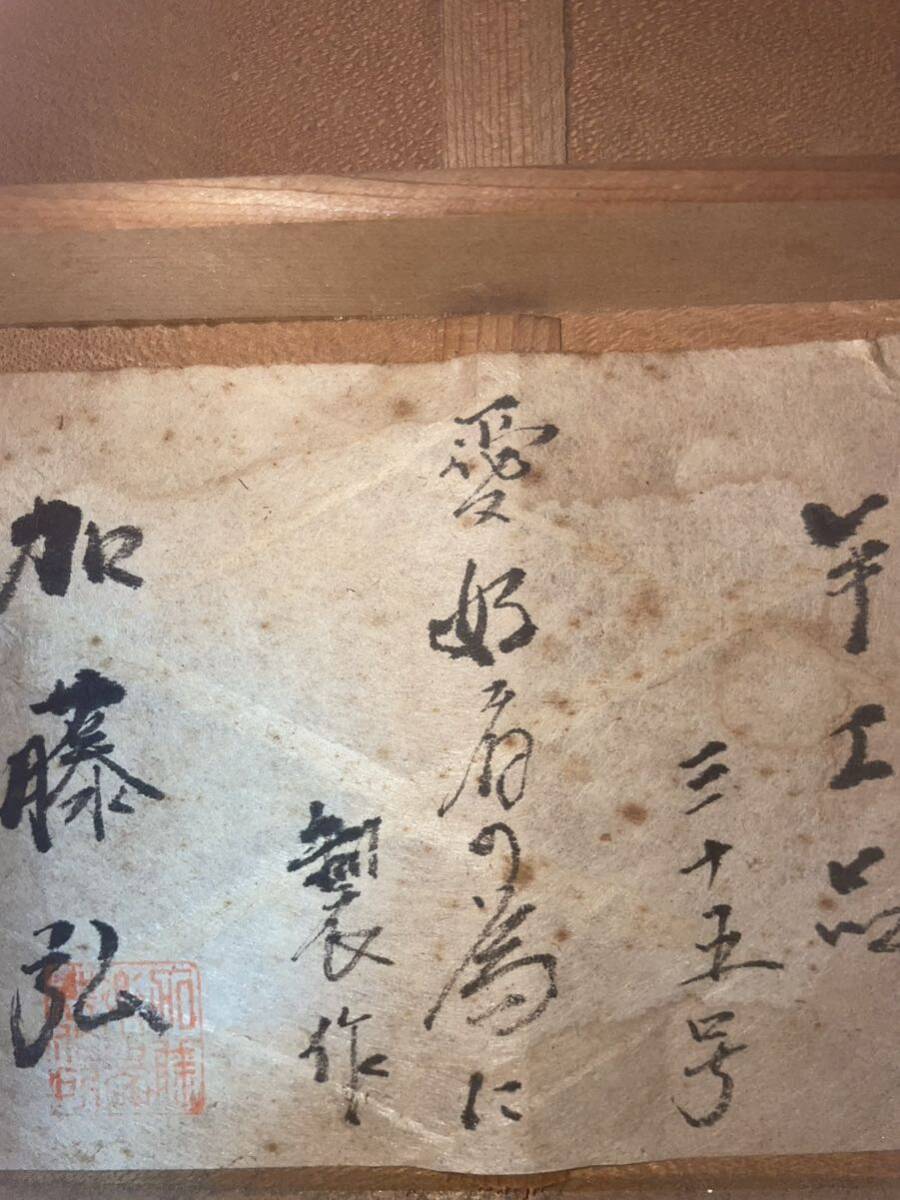 工品
三十五号
愛好者の為に
製作
加藤弘